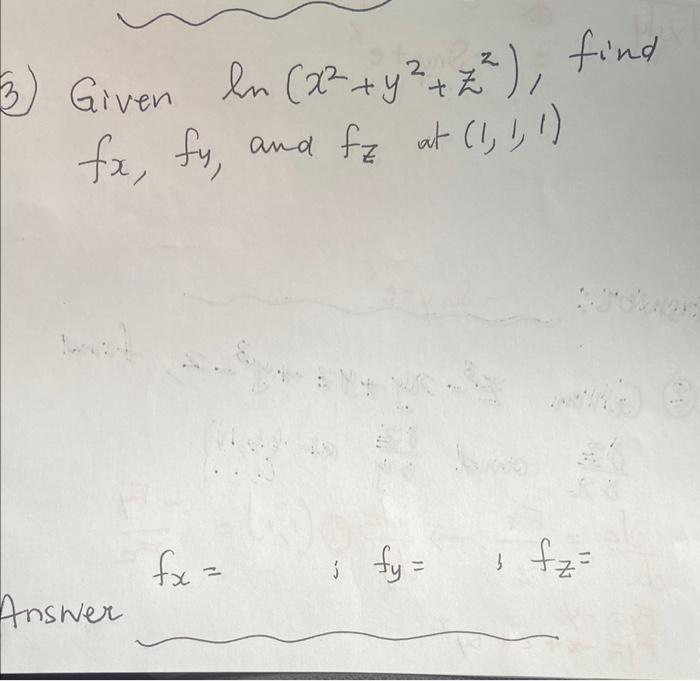 3) Given ln (x² + y² + z²), find
fx, fy, and fz at (1, 1, 1)
fx = ; fy = ; fz =
Answer